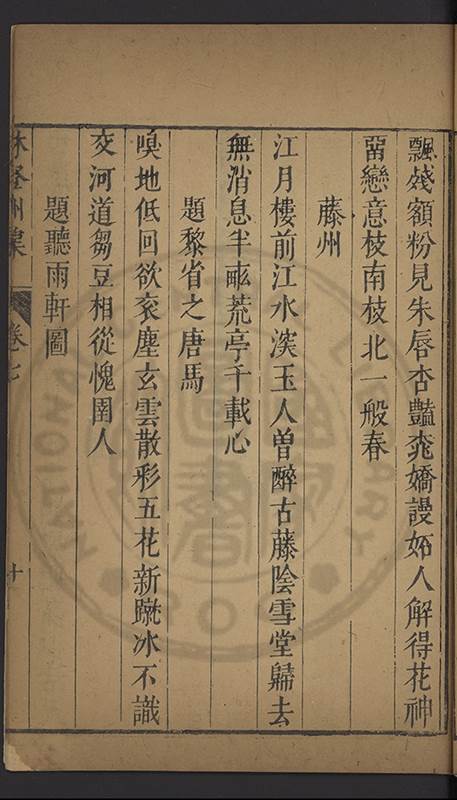 飄殘額粉見朱唇杏豔桃嬌謾妬人解得花神
畱戀意枝南枝北一般春
藤州
江月樓前江水深玉人曽醉古藤陰雪堂歸去
無消息半畝荒亭千載心
題黎省之唐馬
嗅地低回欲衮塵玄雲散彩五花新蹴冰不識
交河道芻豆相從愧圉人
題聽雨軒圖
卷七
十